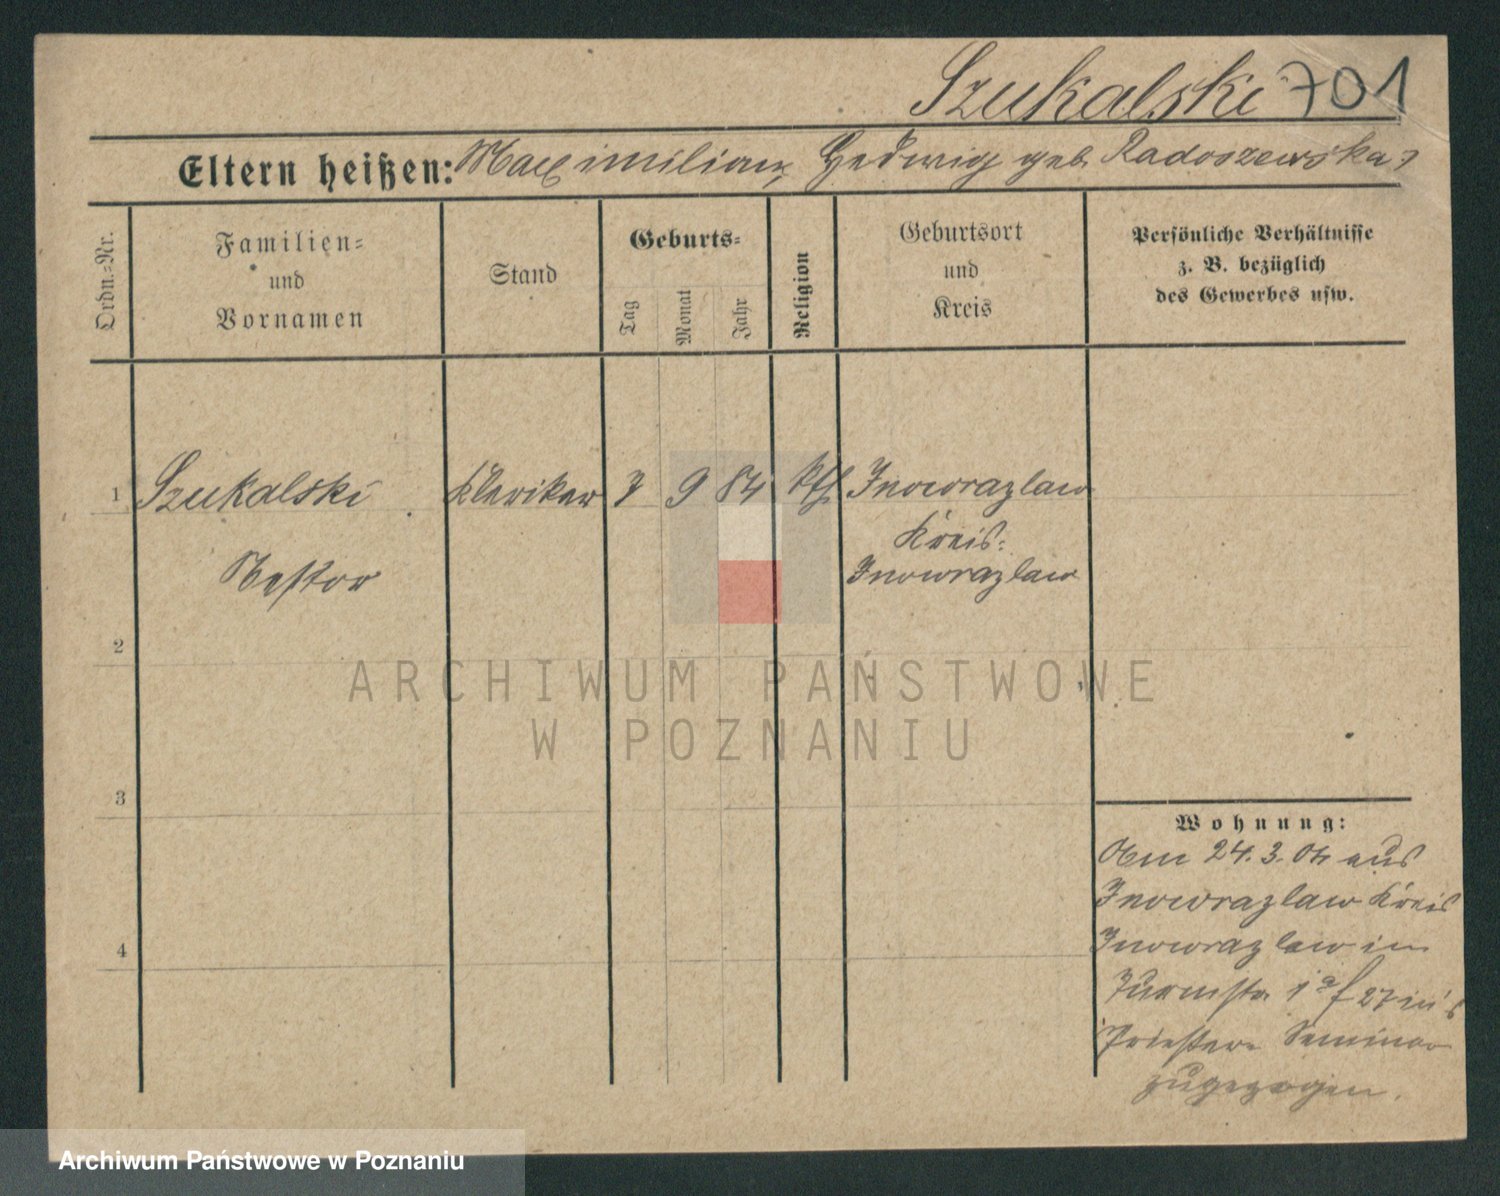 Szukalski 701
Eltern heißen: Maximilian, Hedwig geb. Radoszewska
Ordn.-Nr.
Familien-
und
Vornamen
Stand
Geburts-
Tag
Monat
Jahr
Religion
Geburtsort
und
Kreis
Persönliche Verhältnisse
z. B. bezüglich
des Gewerbes usw.
1 Szukalski Kleriker 7 9 84 kth Inowrazlaw
Kreis:
Nestor Inowrazlaw
2
3
Wohnung:
Am 24. 3. 04 aus
Inowrazlaw Kreis
4 Inowrazlaw in
27 in's
Priester Seminar
zugezogen.
ARCHIWUM PAŃSTWOWE
W POZNANIU
Archiwum Państwowe w Poznaniu